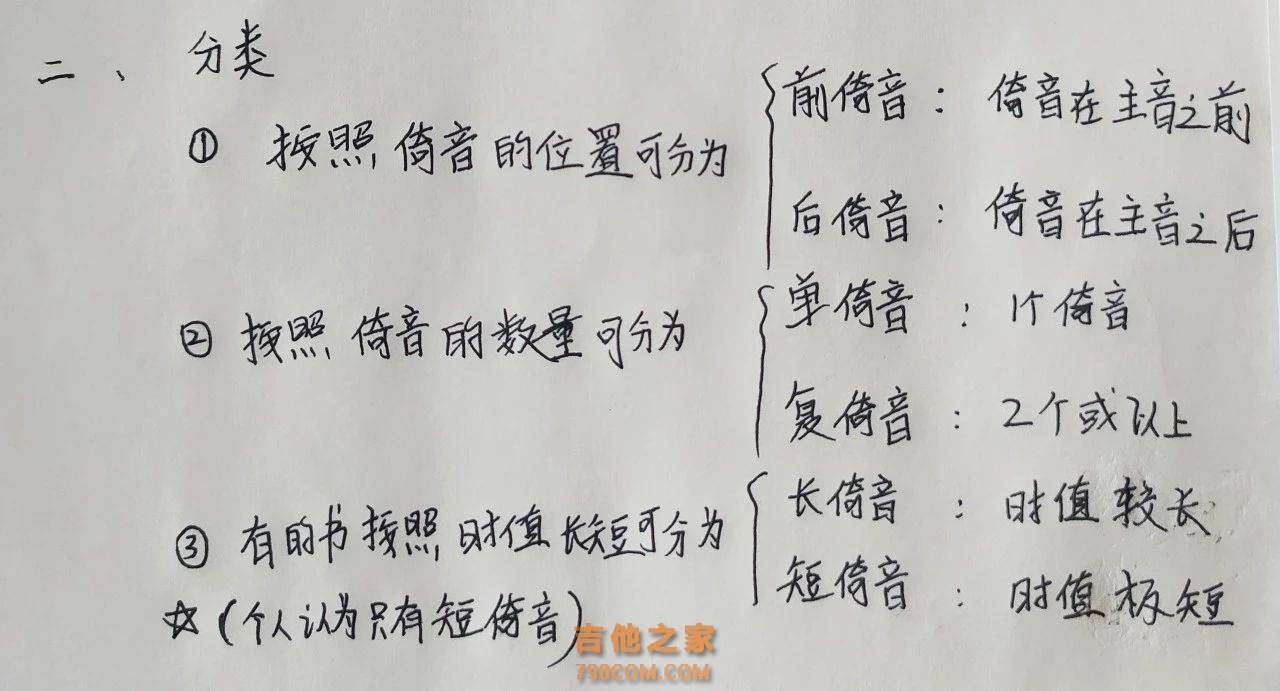 二、分类
① 按照倚音的位置可分为
前倚音：倚音在主音之前
后倚音：倚音在主音之后
② 按照倚音的数量可分为
单倚音：1个倚音
复倚音：2个或以上
③ 有的书按照时值长短可分为
长倚音：时值较长
短倚音：时值极短
☆（个人认为只有短倚音）
吉他之家
798COM.COM